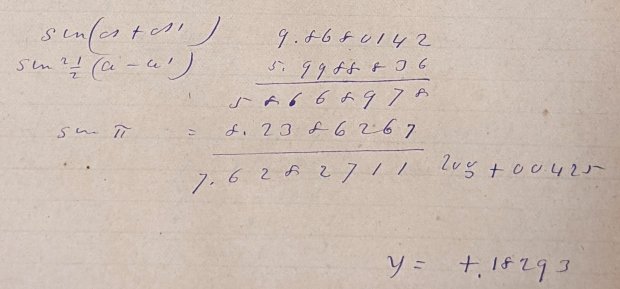 sin(δ + δ') 9.8680142
sin ² ½ (a − a') 5.9988836
5 8668978
sin π = 8.2386267
7.6282711 log + 00425
y = +.18293